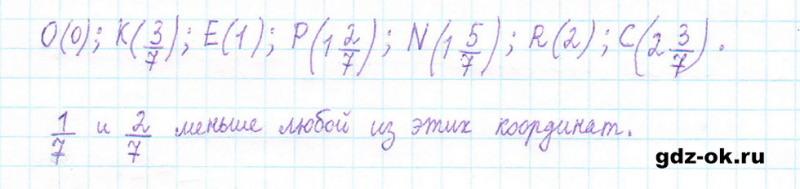 O(0); K(3/7); E(1); P(1 2/7); N(1 5/7); R(2); C(2 3/7).
1/7 и 2/7 меньше любой из этих координат.
gdz-ok.ru